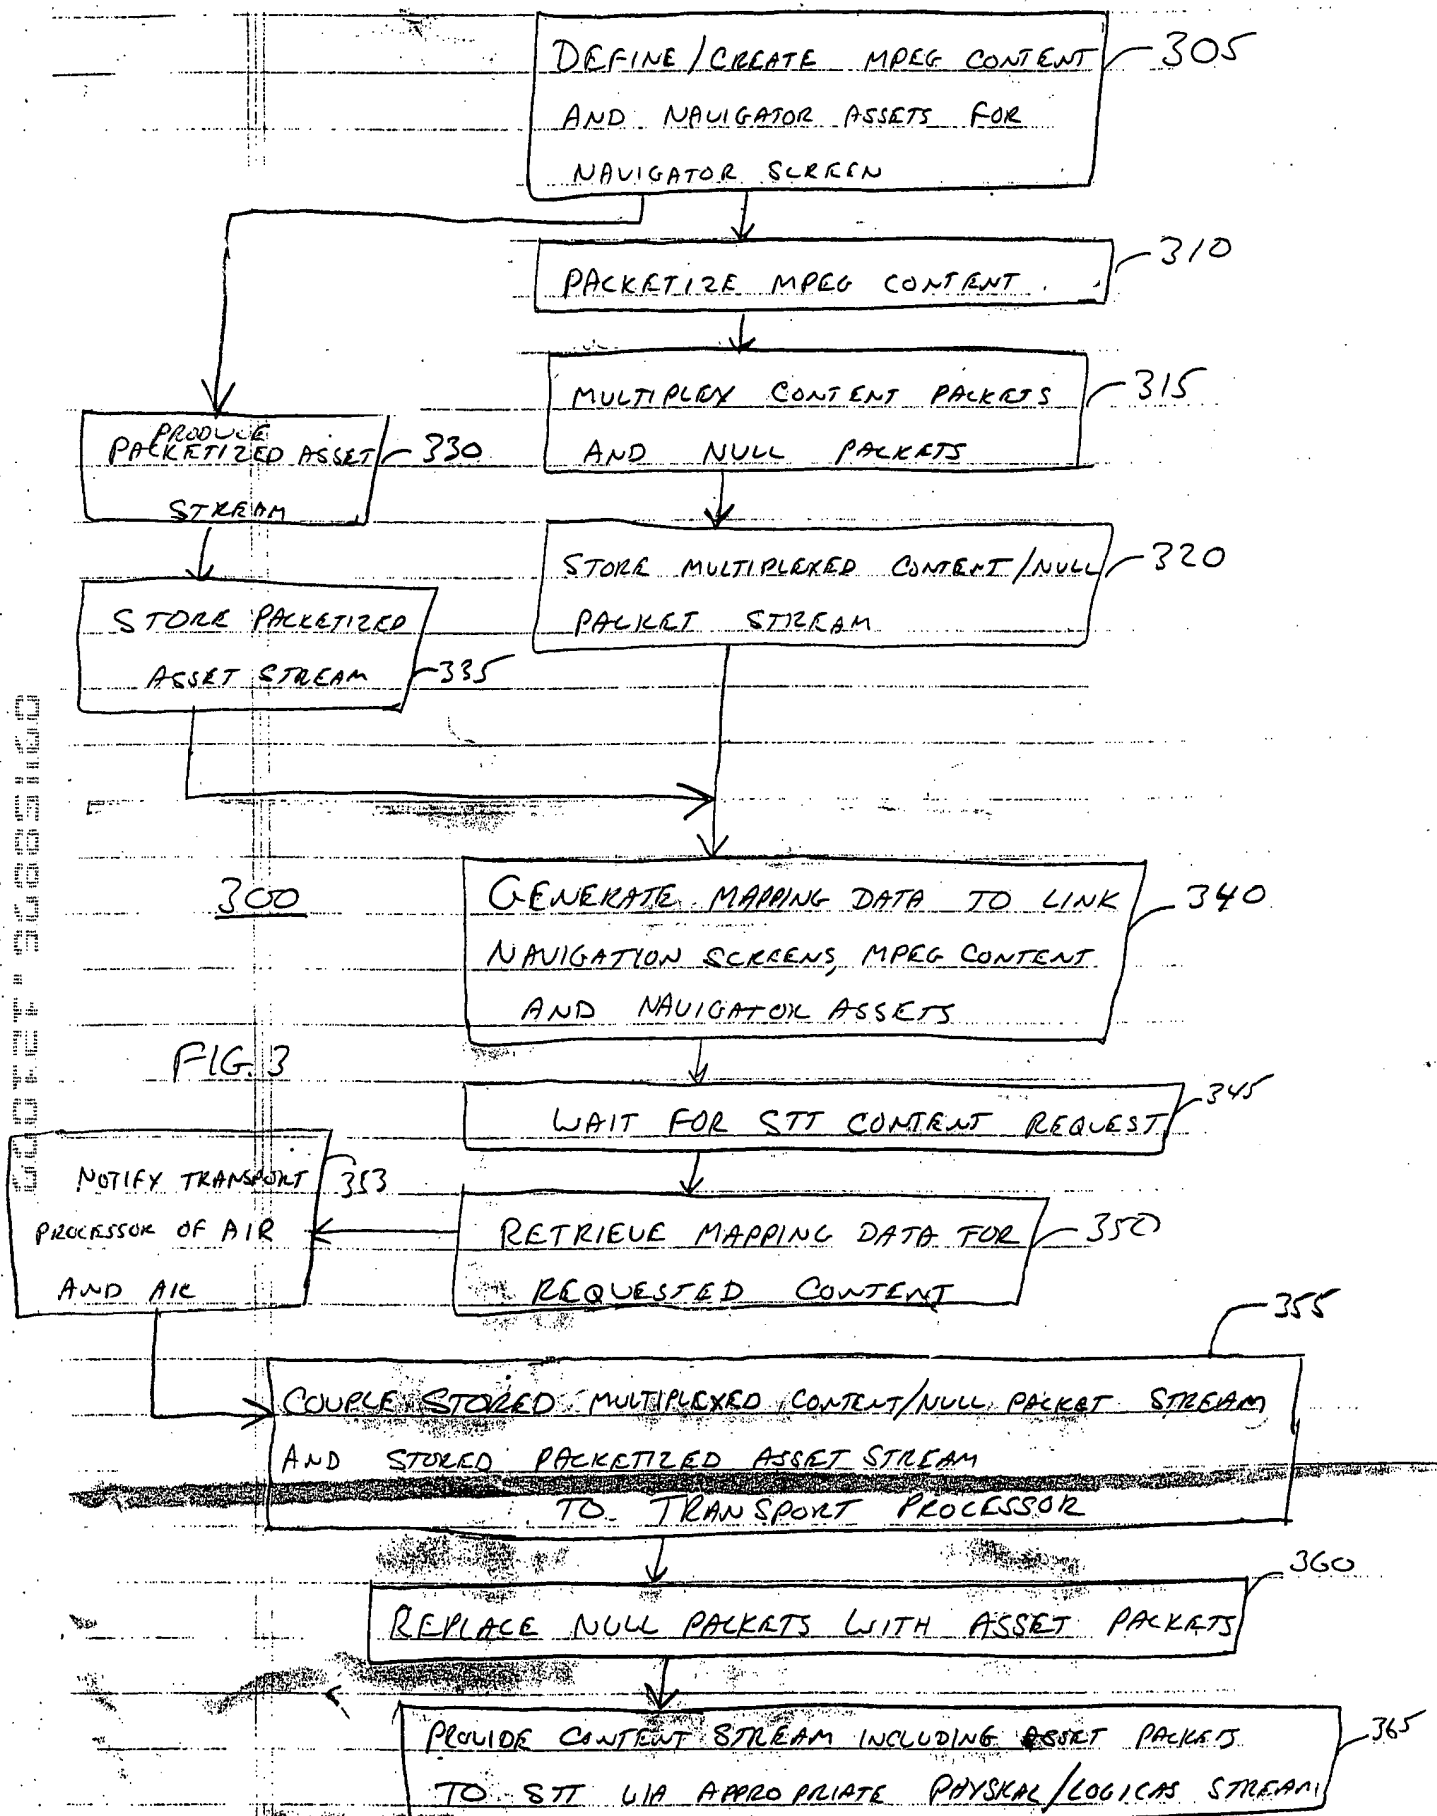 DEFINE/CREATE MPEG CONTENT
AND NAVIGATOR ASSETS FOR
NAVIGATOR SCREEN
305
PACKETIZE MPEG CONTENT
310
MULTIPLEX CONTENT PACKETS
AND NULL PACKETS
315
PRODUCE
PACKETIZED ASSET
STREAM
330
STORE MULTIPLEXED CONTENT/NULL
PACKET STREAM
320
STORE PACKETIZED
ASSET STREAM
335
300
GENERATE MAPPING DATA TO LINK
NAVIGATION SCREENS, MPEG CONTENT
AND NAVIGATOR ASSETS
340
FIG. 3
WAIT FOR STT CONTENT REQUEST
345
NOTIFY TRANSPORT
PROCESSOR OF AIR
AND AIR
353
RETRIEVE MAPPING DATA FOR
REQUESTED CONTENT
350
355
COUPLE STORED MULTIPLEXED CONTENT/NULL PACKET STREAM
AND STORED PACKETIZED ASSET STREAM
TO TRANSPORT PROCESSOR
360
REPLACE NULL PACKETS WITH ASSET PACKETS
PROVIDE CONTENT STREAM INCLUDING ASSET PACKETS
TO STT VIA APPROPRIATE PHYSICAL/LOGICAL STREAM
365